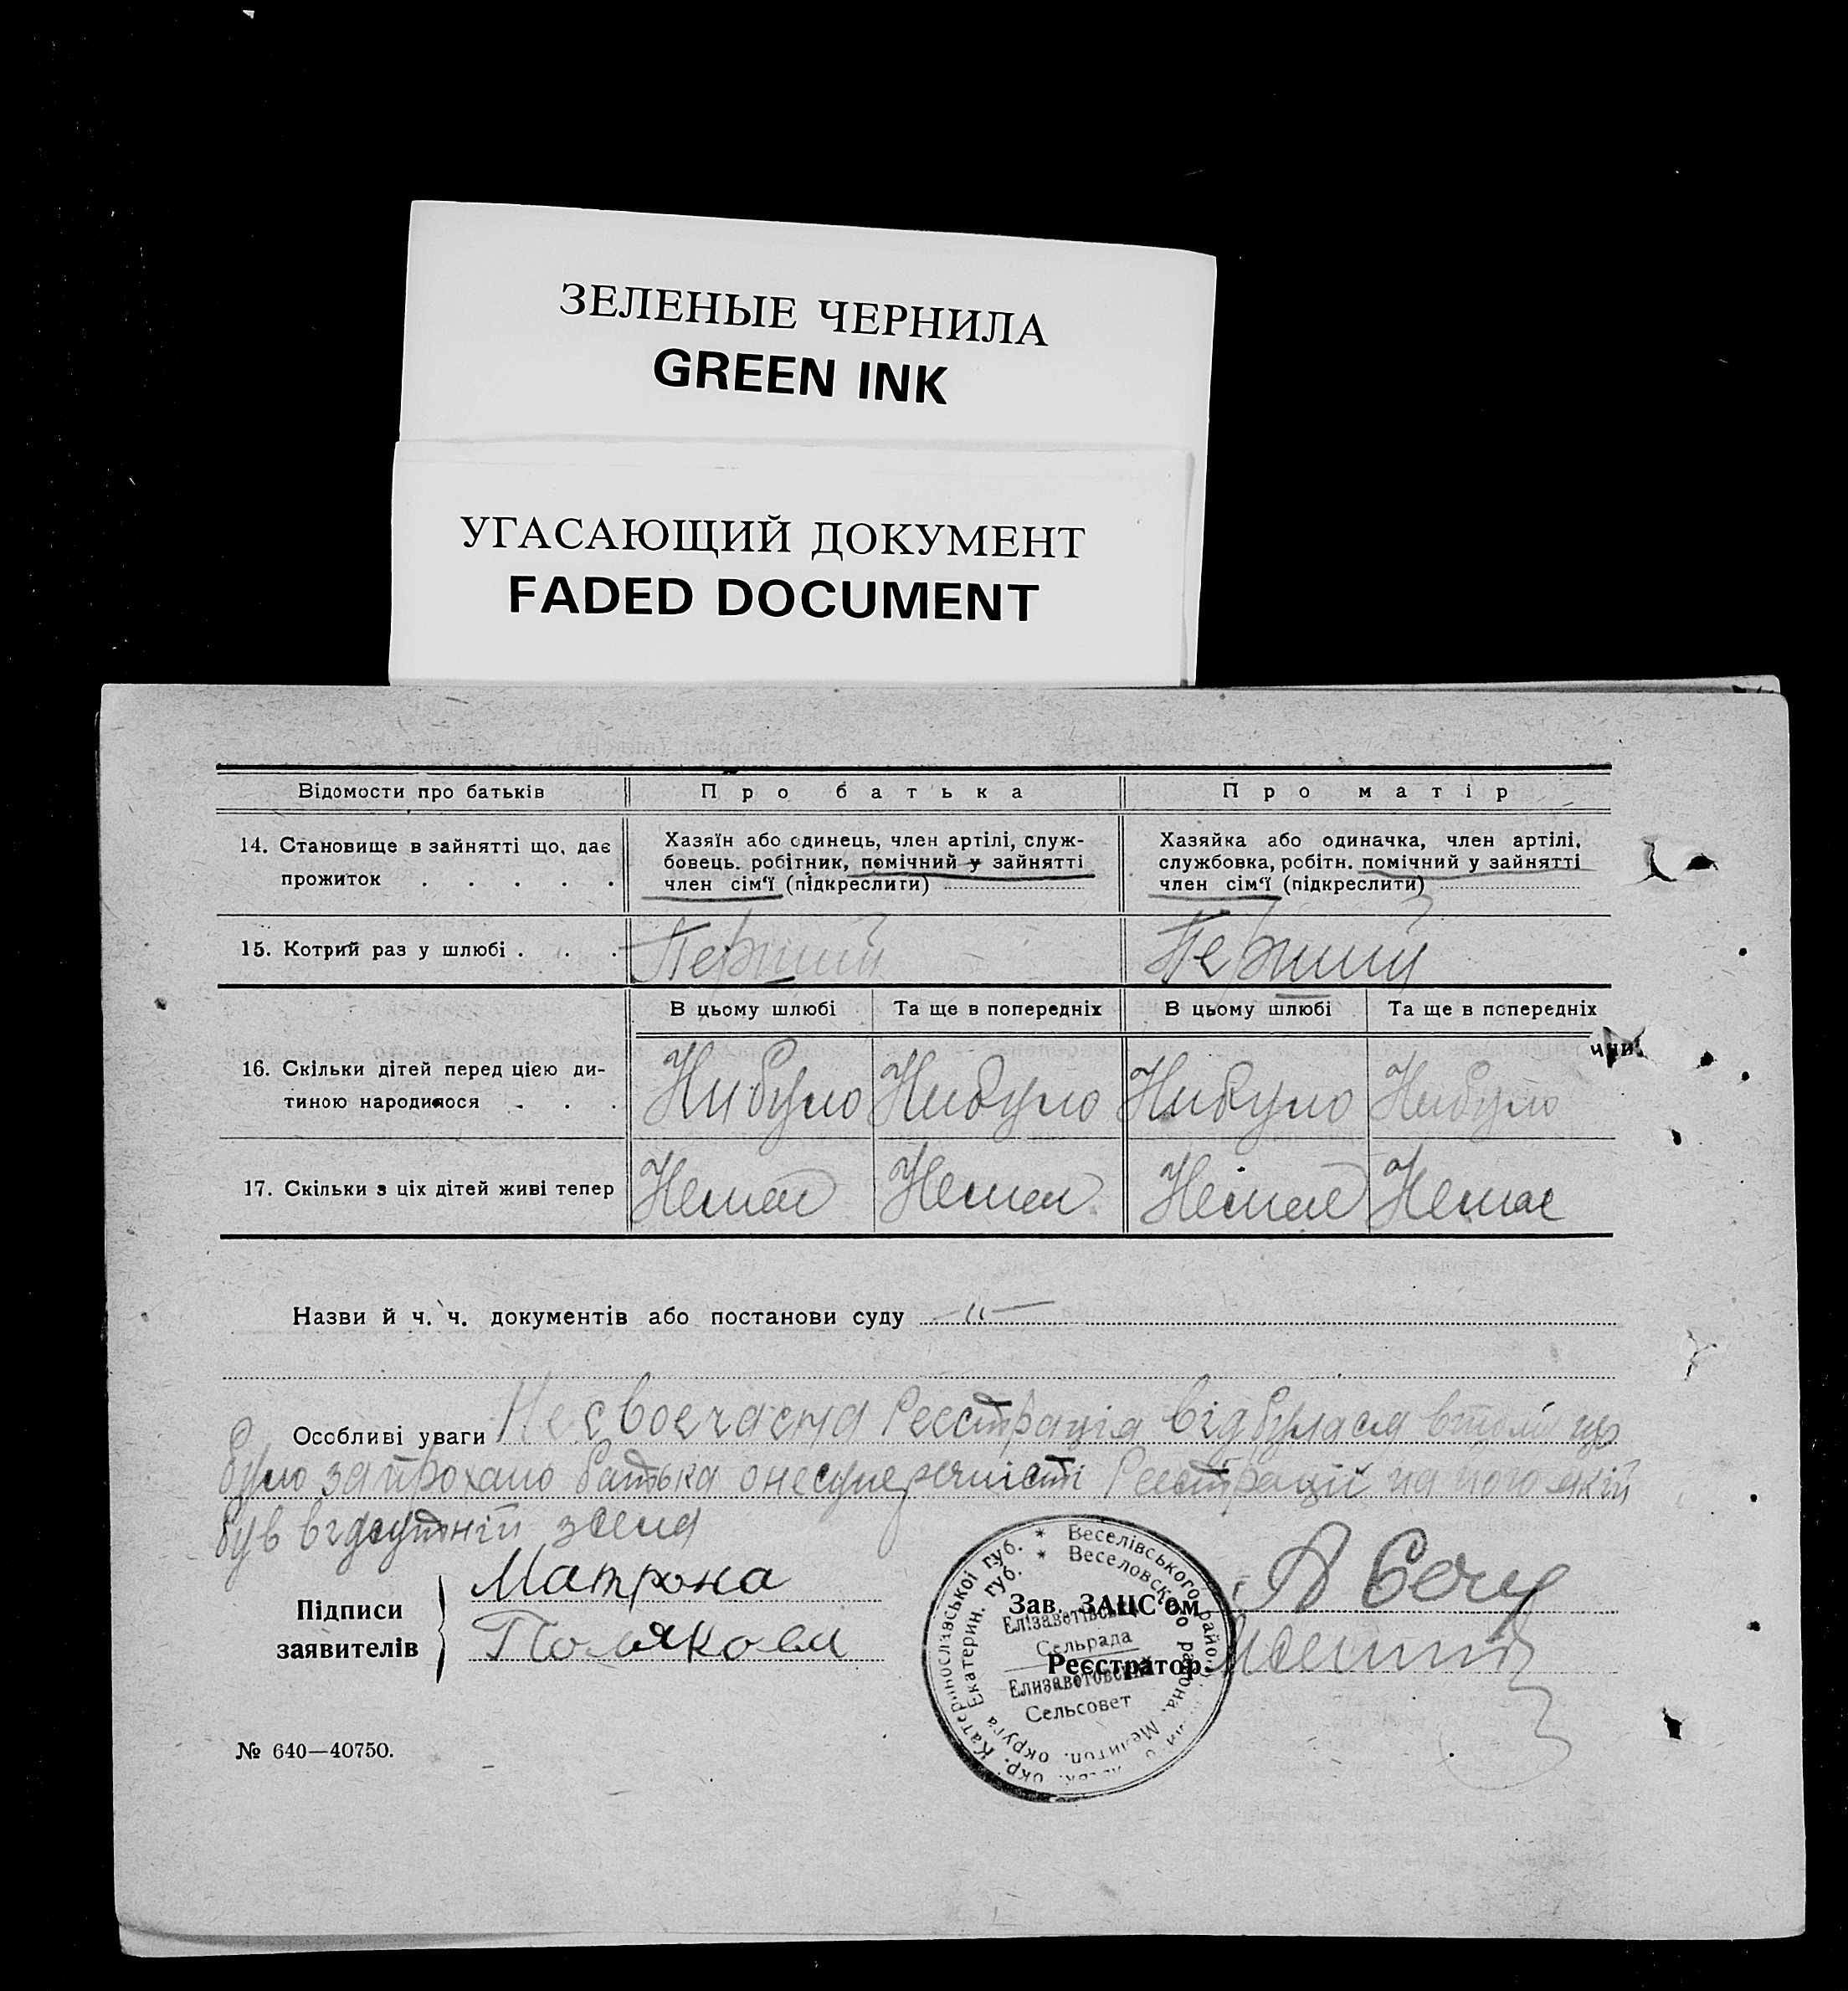 ЗЕЛЕНЫЕ ЧЕРНИЛА
GREEN INK
УГАСАЮЩИЙ ДОКУМЕНТ
FADED DOCUMENT
Відомости про батьків
Про батька
Про матір
14. Становище в зайнятті що, дає
прожиток . . . . .
Хазяїн або одинець, член артілі, служ-
бовець. робітник, помічний у зайнятті
член сім‘ї (підкреслити)
Хазяйка або одиначка, член артілі,
службовка, робітн. помічний у зайнятті
член сім‘ї (підкреслити)
15. Котрий раз у шлюбі . . .
Перший
Перший
В цьому шлюбі
Та ще в попередніх
В цьому шлюбі
Та ще в попередніх
16. Скільки дітей перед цією ди-
тиною народилося . . .
Нибуло
Нибуло
Нибуло
Нибуло
17. Скільки з ціх дітей живі тепер
Немае
Немае
Немае
Немае
Назви й ч. ч. документів або постанови суду —"—
Особливі уваги Несвоечасна Реєстрація відбулася втому що
було запрохано батька о несуперечністі Реєстрації на його якій
був відсутній з села
Підписи
заявителів
Матрона
Полякова
Зав. ЗАЦС‘ом
Реєстратор
* Веселівського району
окр. Катеринославської губ.
* Веселовского района, Мелитоп. округа Екатерин. губ.
Елізаветівська
Сельрада
Елизаветовский
Сельсовет
№ 640—40750.